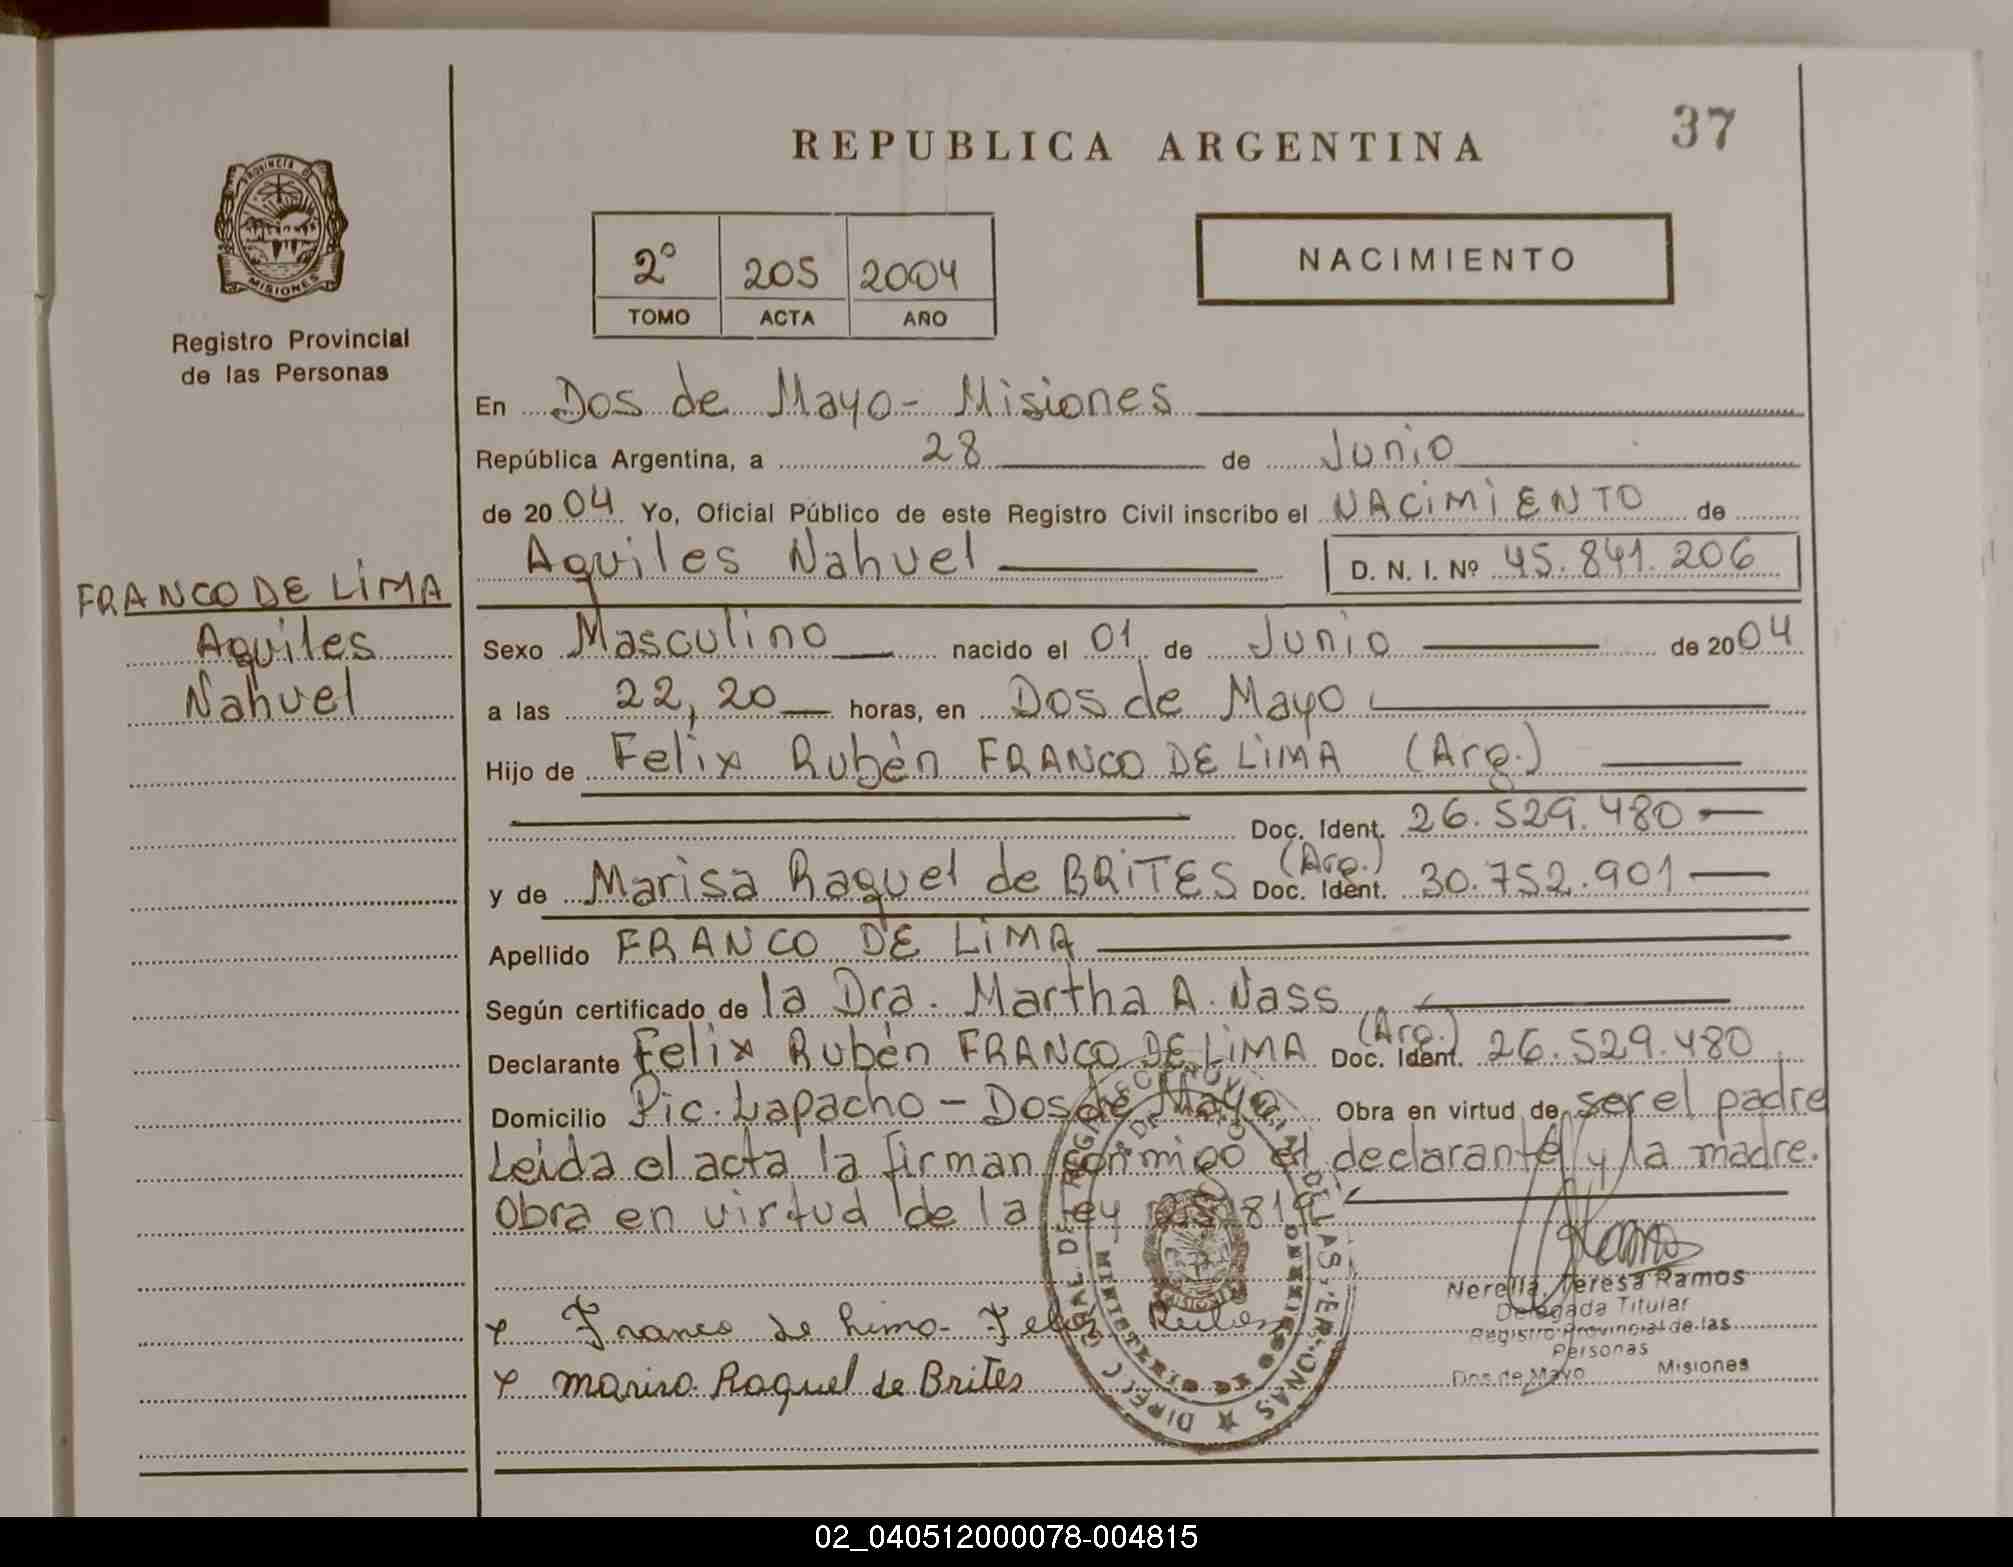 37
REPUBLICA ARGENTINA
PROVINCIA D
MISIONES
Registro Provincial
de las Personas
2º 205 2004
TOMO ACTA AÑO
NACIMIENTO
En Dos de Mayo - Misiones
República Argentina, a 28 de Junio
de 2004 Yo, Oficial Público de este Registro Civil inscribo el NACIMIENTO de
Aquiles Nahuel D. N. I. Nº 45.841.206
FRANCO DE LIMA
Aquiles
Nahuel
Sexo Masculino nacido el 01 de Junio de 2004
a las 22,20 horas, en Dos de Mayo
Hijo de Felix Rubén FRANCO DE LIMA (Arg.)
Doc. Ident. 26.529.480
y de Marisa Raquel de BRITES (Arg.) Doc. Ident. 30.752.901
Apellido FRANCO DE LIMA
Según certificado de la Dra. Martha A. Nass
Declarante Felix Rubén FRANCO DE LIMA (Arg.) Doc. Ident. 26.529.480
Domicilio Pic. Lapacho - Dos de Mayo Obra en virtud de ser el padre
Leida el acta la firman conmigo el declarante y la madre.
Obra en virtud de la ley 25.819
x Franco de Lima - Felix Rubén
x Marisa Raquel de Brites
Nerella Teresa Ramos
Delegada Titular
Registro Provincial de las
Personas
Dos de Mayo Misiones
02_040512000078-004815